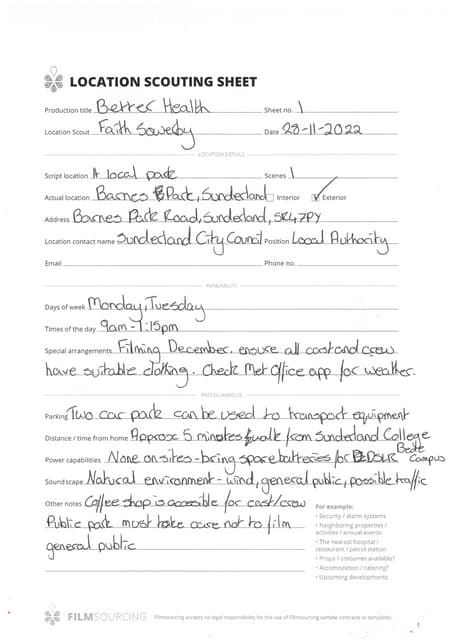 LOCATION SCOUTING SHEET
Production title Better Health Sheet no. 1
Location Scout Faith Sowerby Date 28-11-2022
LOCATION DETAILS
Script location A local park Scenes 1
Actual location Barnes Park, Sunderland Interior Exterior
Address Barnes Park Road, Sunderland, SR4 7PY
Location contact name Sunderland City Council Position Local Authority
Email Phone no.
AVAILABILITY
Days of week Monday, Tuesday
Times of the day 9am - 1:15pm
Special arrangements Filming December. ensure all cast and crew
have suitable clothing. Check Met Office app for weather.
MISCELLANEOUS
Parking Two car park can be used to transport equipment
Distance / time from home Approx 5 minutes walk from Sunderland College
Bede
Power capabilities None on sites - bring spare batteries for DSLR Campus
Soundscape Natural environment - wind, general public, possible traffic
Other notes Coffee shop is accessible for cast/crew
Public park must take care not to film
general public
For example:
• Security / alarm systems
• Neighboring properties /
activities / annual events
• The nearest hospital /
restaurant / petrol station
• Props / costumes available?
• Accomodation / catering?
• Upcoming developments
FILMSOURCING Filmsourcing accepts no legal responsibility for the use of Filmsourcing sample contracts or templates.